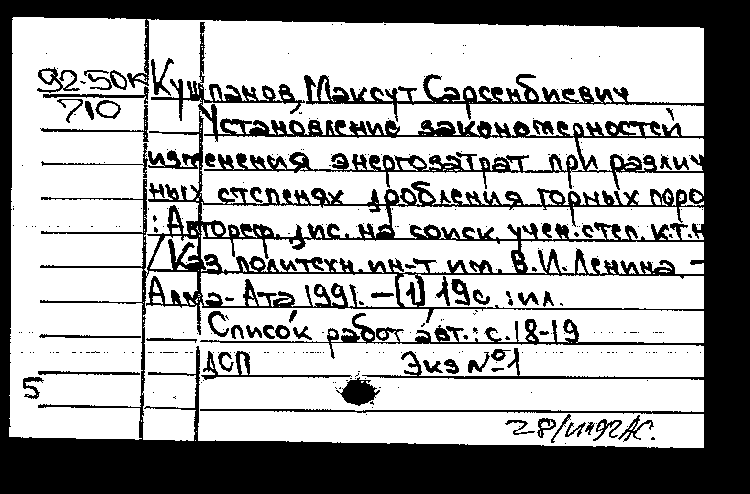 92-50К Кушпанов, Максут Сарсенбиевич
710 Установление закономерностей
изменения энергозатрат при различ
ных степенях дробления горных поро
: Автореф. дис. на соиск. учен. степ. к.т.н
/ Каз. политехн. ин-т им. В.И. Ленина –
Алма-Ата 1991. – [1] 19с. : ил.
Список работ авт.: с. 18-19
ДСП Экз №1
5